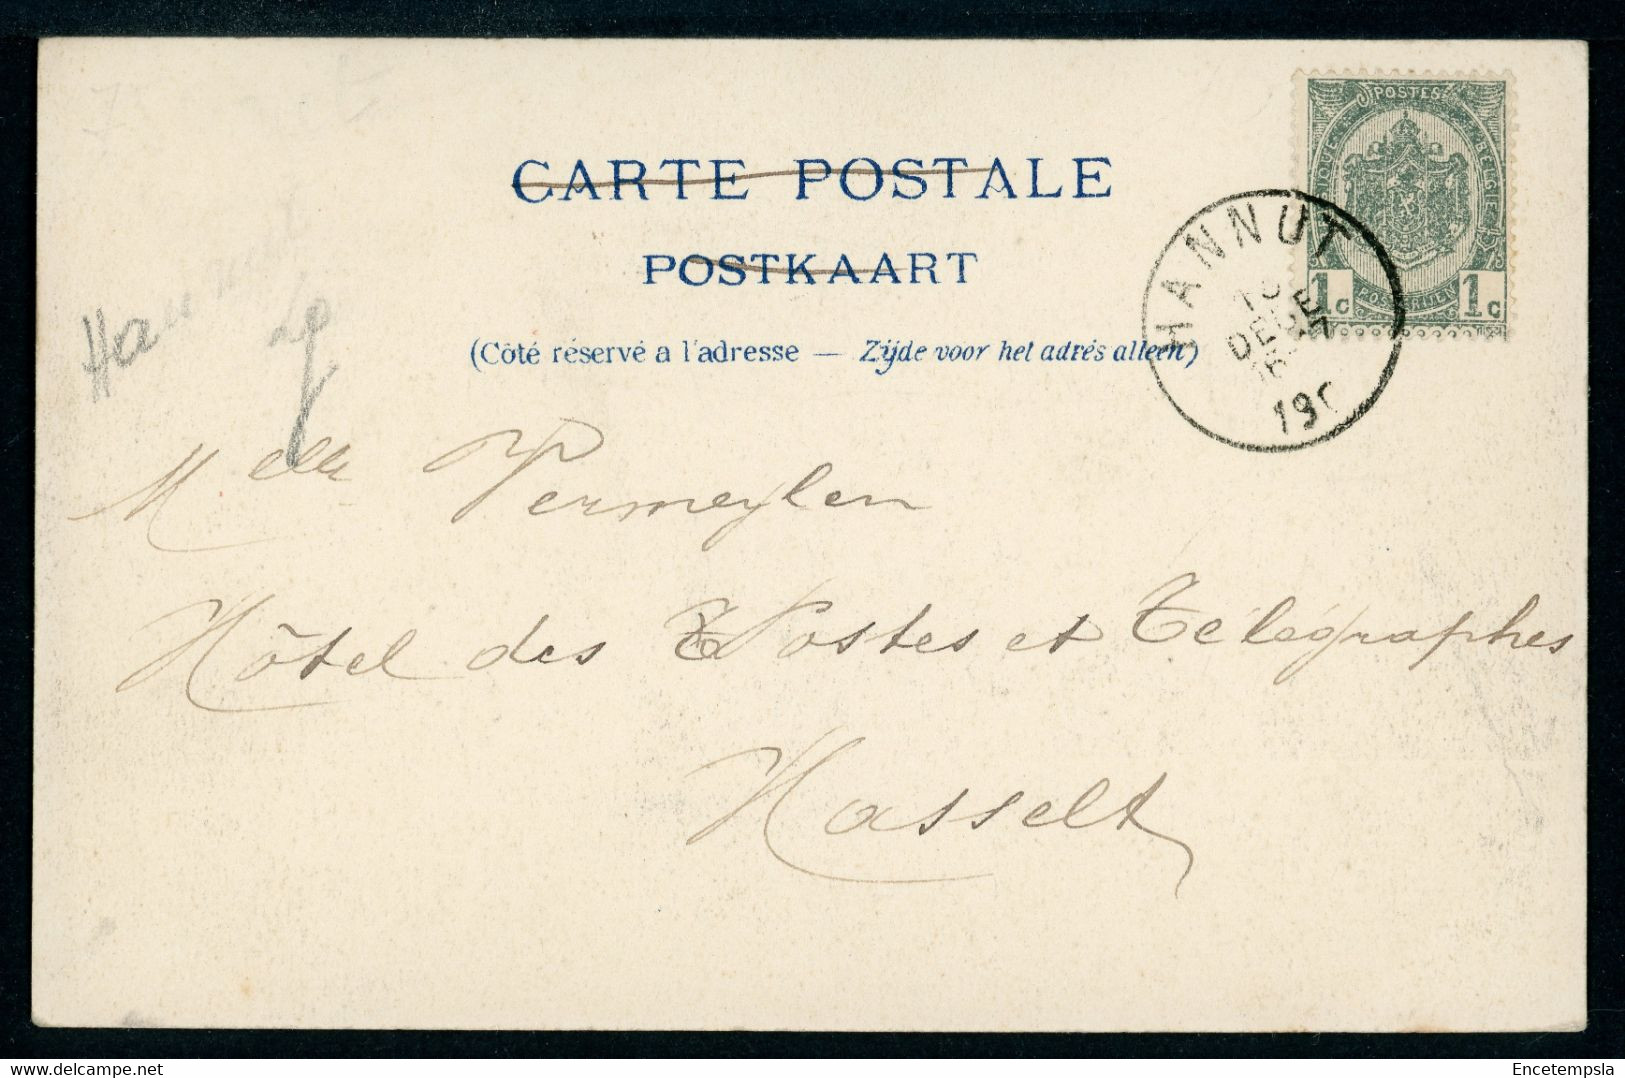 CARTE POSTALE
POSTKAART
(Côté réservé a l'adresse — Zijde voor het adrés alleen)
POSTES
BELGIQUE BELGIE
1c POSTERIJEN 1c
HANNUT
DEC
190
Hannut
Lg
Melle Vermeylen
Hôtel des Postes et Télégraphes
Hasselt
Delcampe.net
Encetempsla